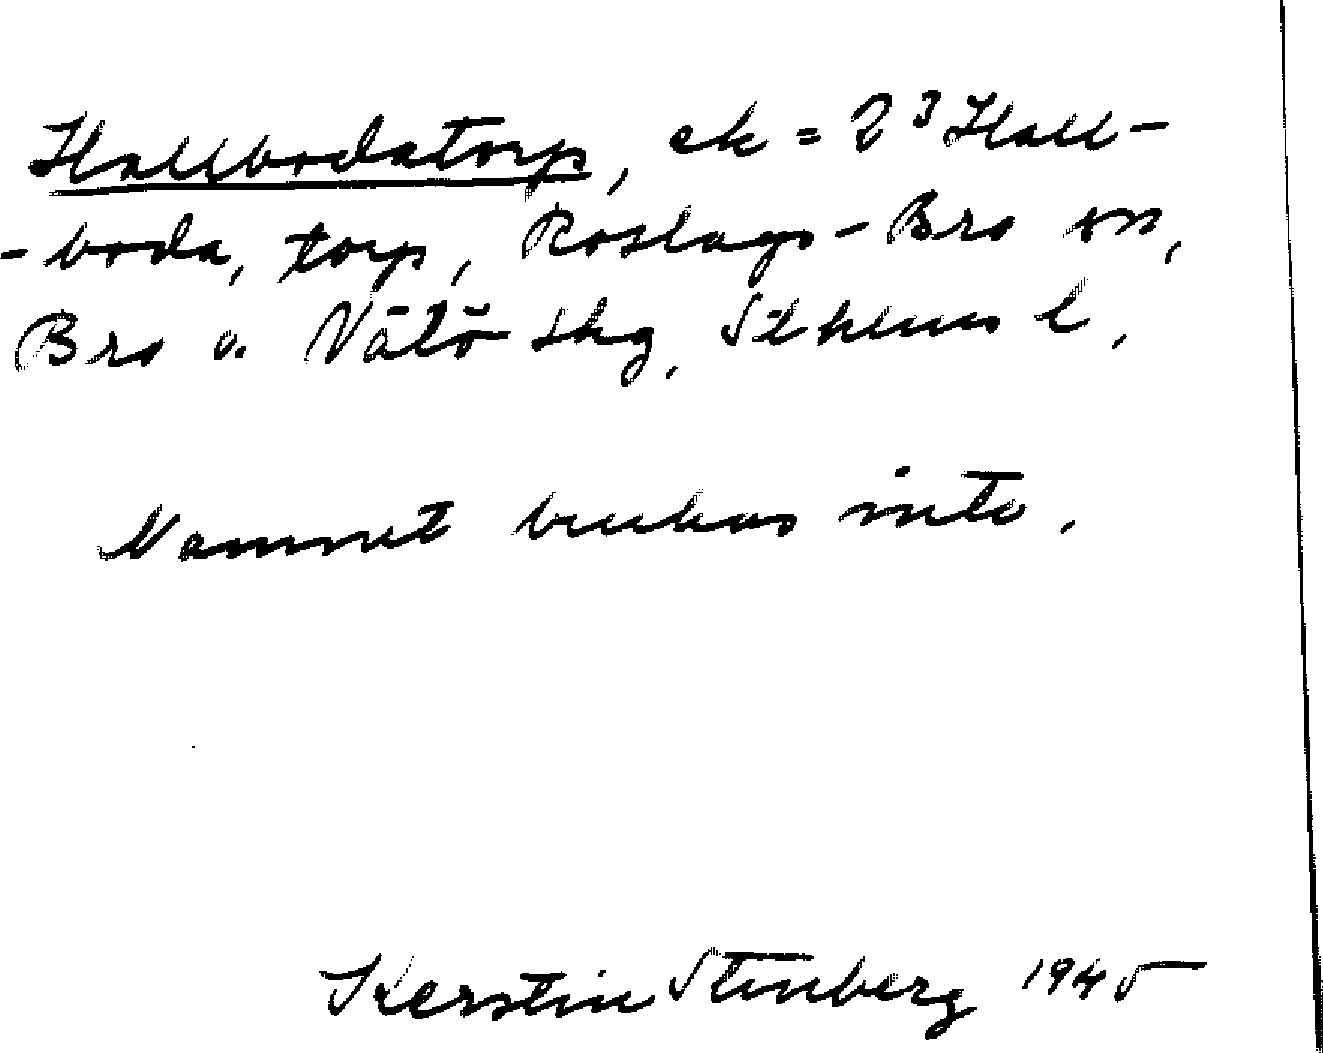 Hallbodatorp, ek = 2³ Hall-
-boda, torp, Roslags-Bro sn,
Bro o. Vätö skg, Sthlms l,
Namnet brukas inte.
Kerstin Stenberg 1945